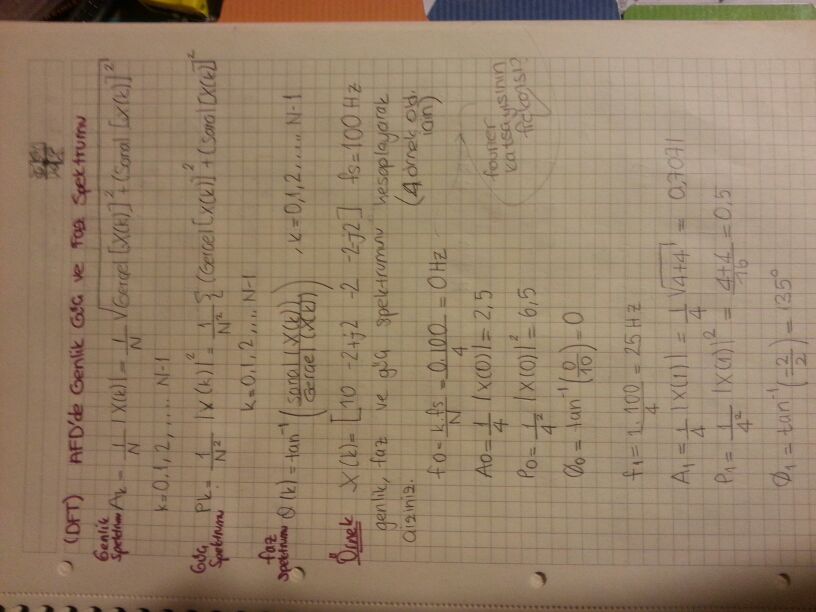 (DFT) AFD'de Genlik Güç ve Faz Spektrumu
Genlik Spektrumu Ak = 1/N |X(k)| = 1/N √(Gerçel[X(k)]² + (Sanal[X(k)]²
k=0,1,2,.... N-1
Güç Spektrumu Pk = 1/N² |X(k)|² = 1/N² {(Gerçel[X(k)]² + (Sanal[X(k)]²
k=0,1,2,... N-1
faz spektrumu Φ(k) = tan⁻¹ (Sanal(X(k)) / Gerçel(X(k))) , k=0,1,2..... N-1
Örnek X(k) = [10 -2+j2 -2 -2-j2] fs=100Hz
genlik, faz ve güç spektrumunu hesaplayarak
çiziniz. (4 örnek old. için)
fourier katsayısının
f0 = k.fs/N = 0.100/4 = 0Hz
A0 = 1/4 |X(0)| = 2,5
P0 = 1/4² |X(0)|² = 6,5
Φ0 = tan⁻¹ (0/10) = 0
f1 = 1.100/4 = 25 Hz
A1 = 1/4 |X(1)| = 1/4 √4+4 = 0,7071
P1 = 1/4² |X(1)|² = 4+4/16 = 0.5
Φ1 = tan⁻¹ (-2/2) = 135°